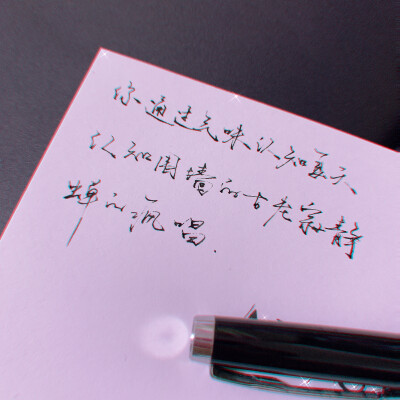 你通过气味认知夏天
认知围墙的古老寂静
蝉的沉唱.